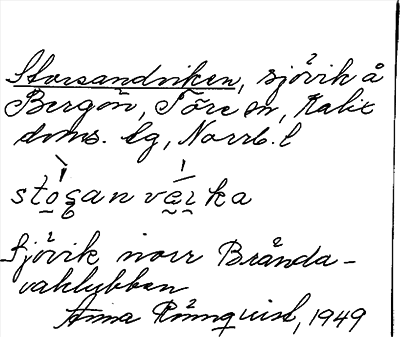 Storsandviken, sjövik å
Bergön, Töre sn, Kalix
doms. lg, Norrb. l
stosan värka
Sjövik norr Brända-
vaklubben
Anna Rönnqvist, 1949